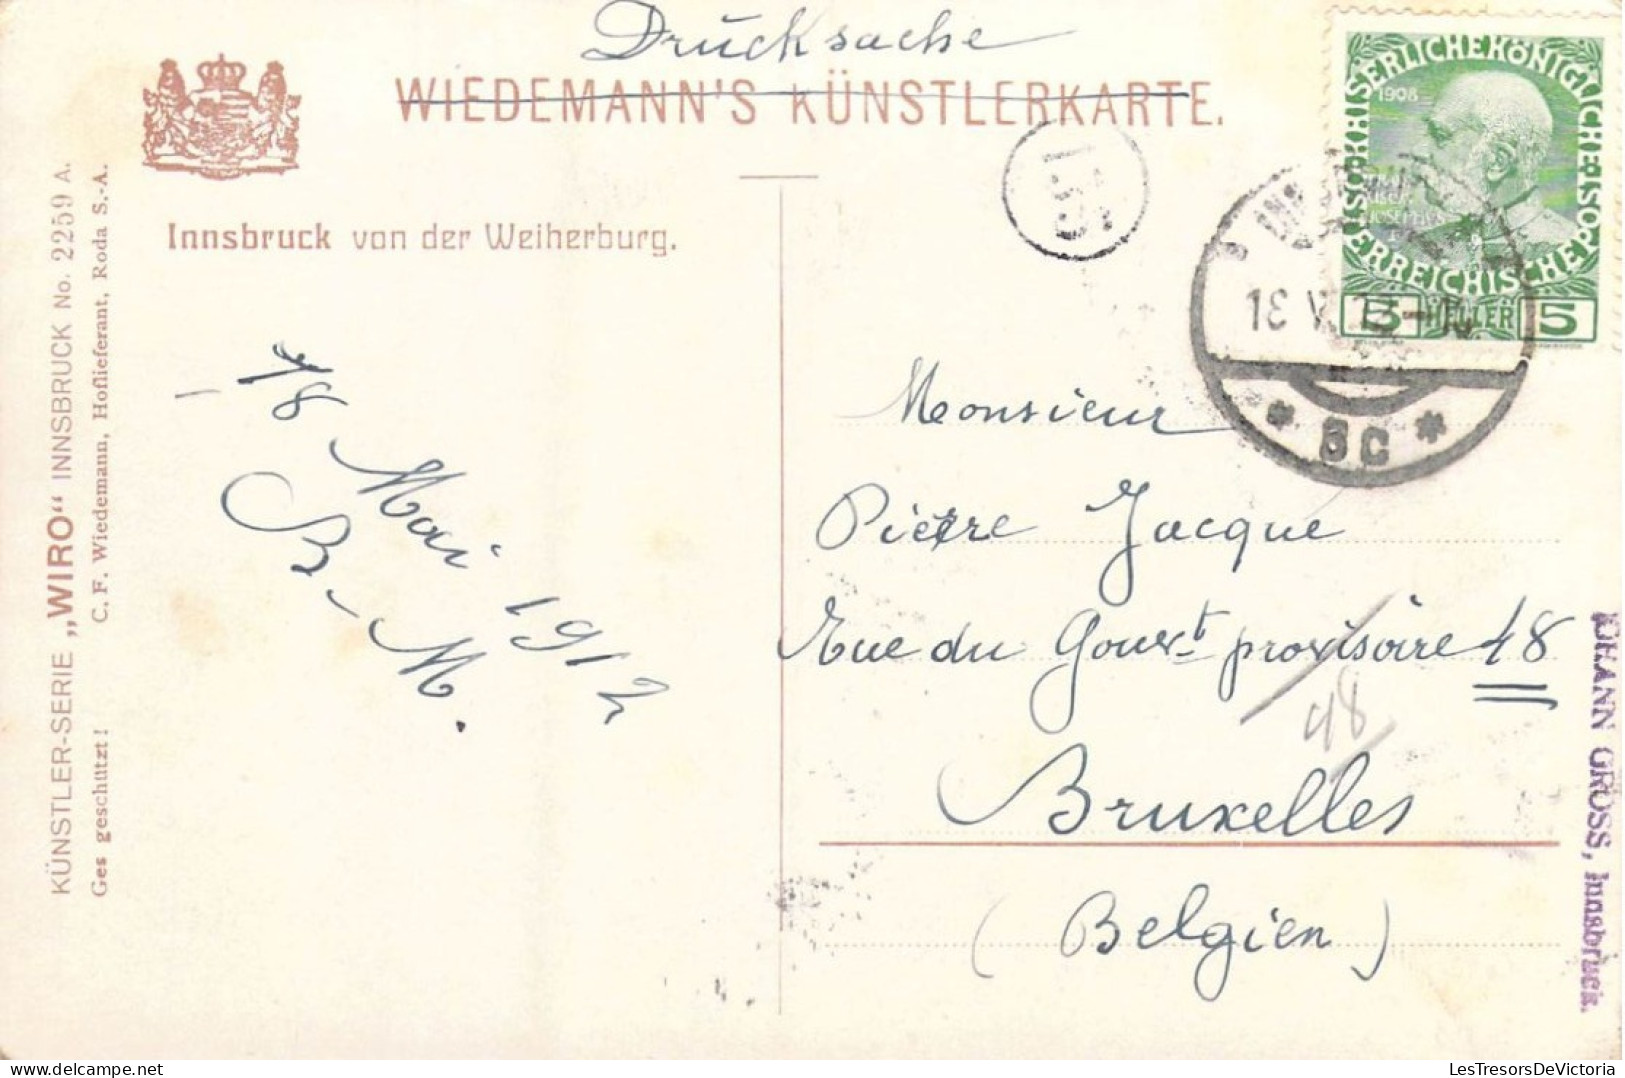 Drucksache
WIEDEMANN'S KÜNSTLERKARTE.
KAISERLICHE KÖNIGLICHE ÖSTERREICHISCHE POST
1908
5 HELLER 5
155
18 V
* 5c *
Innsbruck von der Weiherburg.
KÜNSTLER-SERIE „WIRO“ INNSBRUCK No. 2259 A.
Ges geschützt! C. F. Wiedemann, Hoflieferant, Roda S.-A.
18 Mai 1912
B-M.
Monsieur
Pierre Jacque
Rue du Gouvt provisoire 48
48
Bruxelles
(Belgien)
JOHANN GROSS, Innsbruck.
LesTresorsDeVictoria